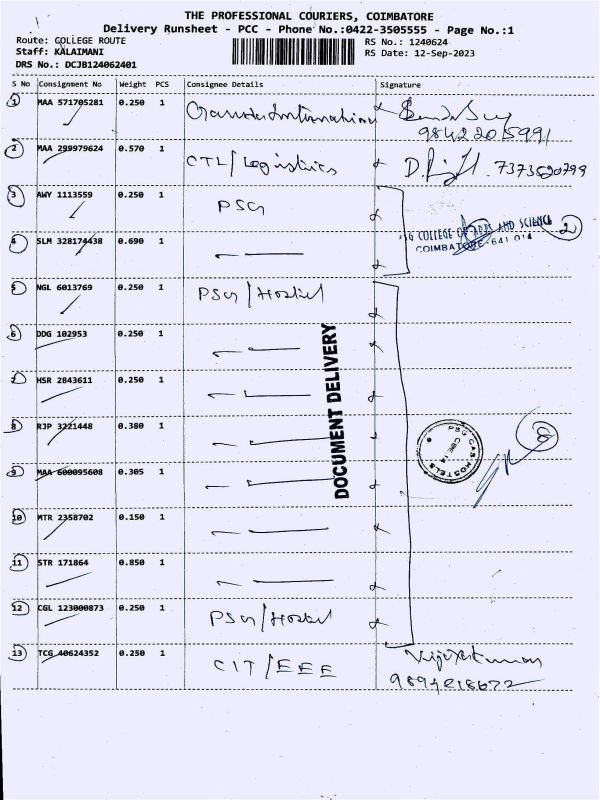 THE PROFESSIONAL COURIERS, COIMBATORE
Delivery Runsheet - PCC - Phone No.:0422-3505555 - Page No.:1
Route: COLLEGE ROUTE
Staff: KALAIMANI
DRS No.: DCJB124062401
RS No.: 1240624
RS Date: 12-Sep-2023
S No Consignment No Weight PCS Consignee Details Signature
1 MAA 571705281 0.250 1
9842205991
2 MAA 299979624 0.570 1 CTL/Logistics 7373520799
3 AWY 1113559 0.250 1 PSG
PSG COLLEGE OF ARTS AND SCIENCE
COIMBATORE-641 014
2
4 SLM 328174438 0.690 1
5 NGL 6013769 0.250 1 PSG/Hostel
6 DDG 102953 0.250 1
7 HSR 2843611 0.250 1
8 RJP 3221448 0.380 1
PSG CAS HOSTELS
CBE-14
8
9 MAA 600095608 0.305 1
10 MTR 2358702 0.150 1
11 STR 171864 0.850 1
12 CGL 123000873 0.250 1 PSG/Hostel
13 TCG 40624352 0.250 1 CIT/EEE Vijayakumar
DOCUMENT DELIVERY